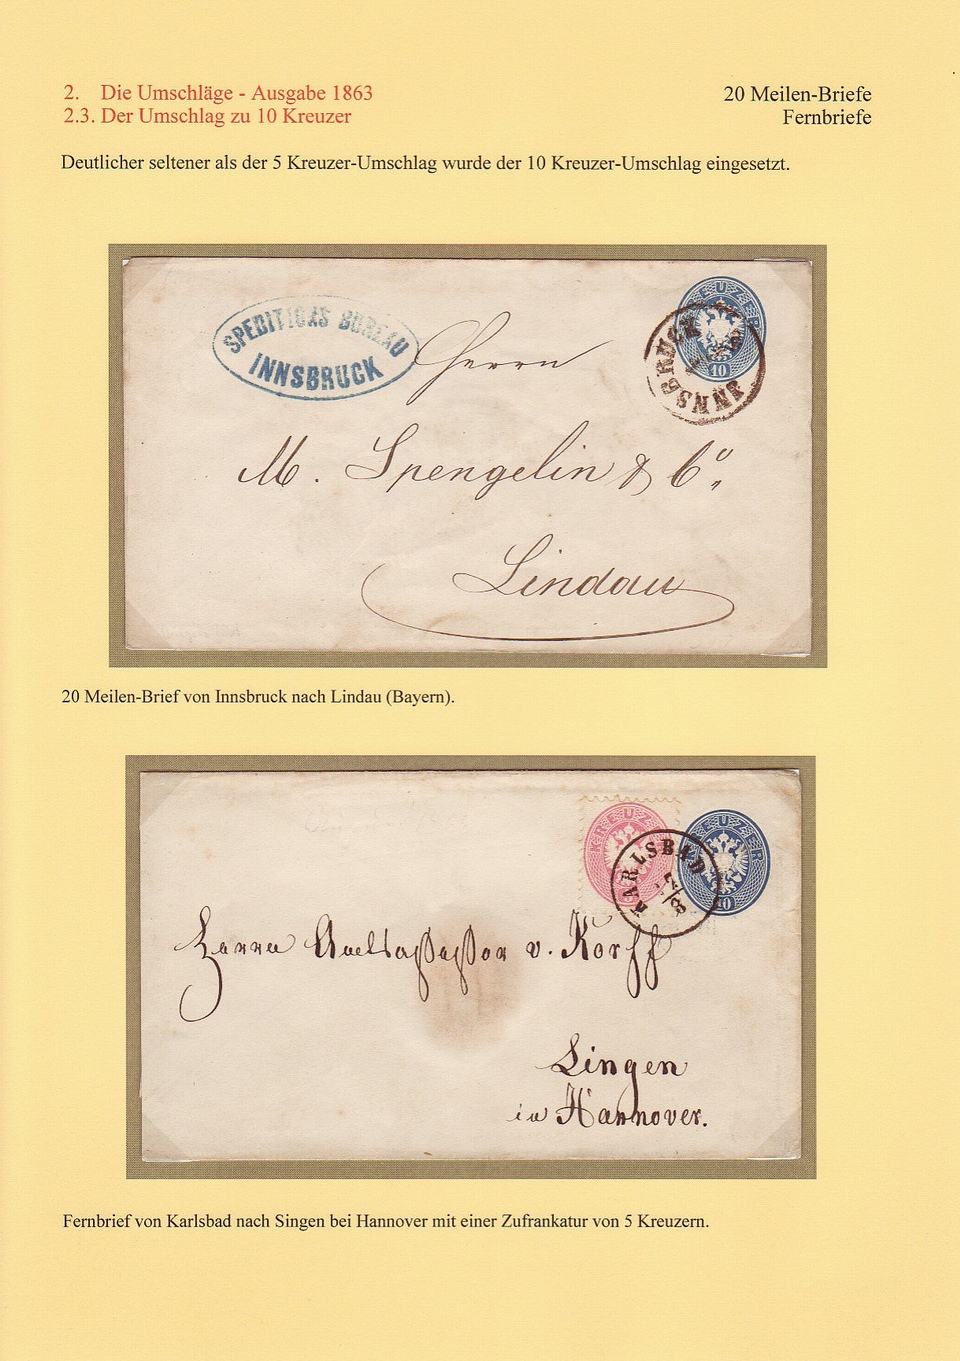 2. Die Umschläge - Ausgabe 1863
2.3. Der Umschlag zu 10 Kreuzer
20 Meilen-Briefe
Fernbriefe
Deutlicher seltener als der 5 Kreuzer-Umschlag wurde der 10 Kreuzer-Umschlag eingesetzt.
SPEDITIONS BUREAU
INNSBRUCK
KREUZER
10
INNSBRUCK
Herrn
M. Spengelin & Co,
Lindau
20 Meilen-Brief von Innsbruck nach Lindau (Bayern).
KREUZER
KREUZER
10
KARLSBAD
7/8
Herrn Amtsassessor v. Korff
Lingen
in Hannover.
Fernbrief von Karlsbad nach Singen bei Hannover mit einer Zufrankatur von 5 Kreuzern.